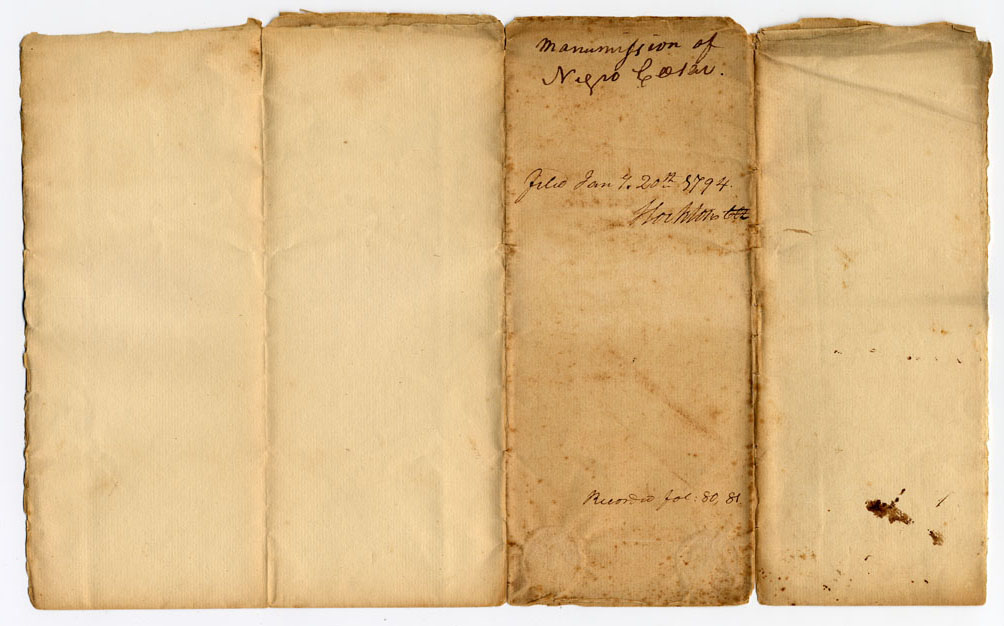 Manumission of
Negro Ceasar.
filed Jany. 20th 1794.
Stockton Clk
Recorded fol: 80, 81